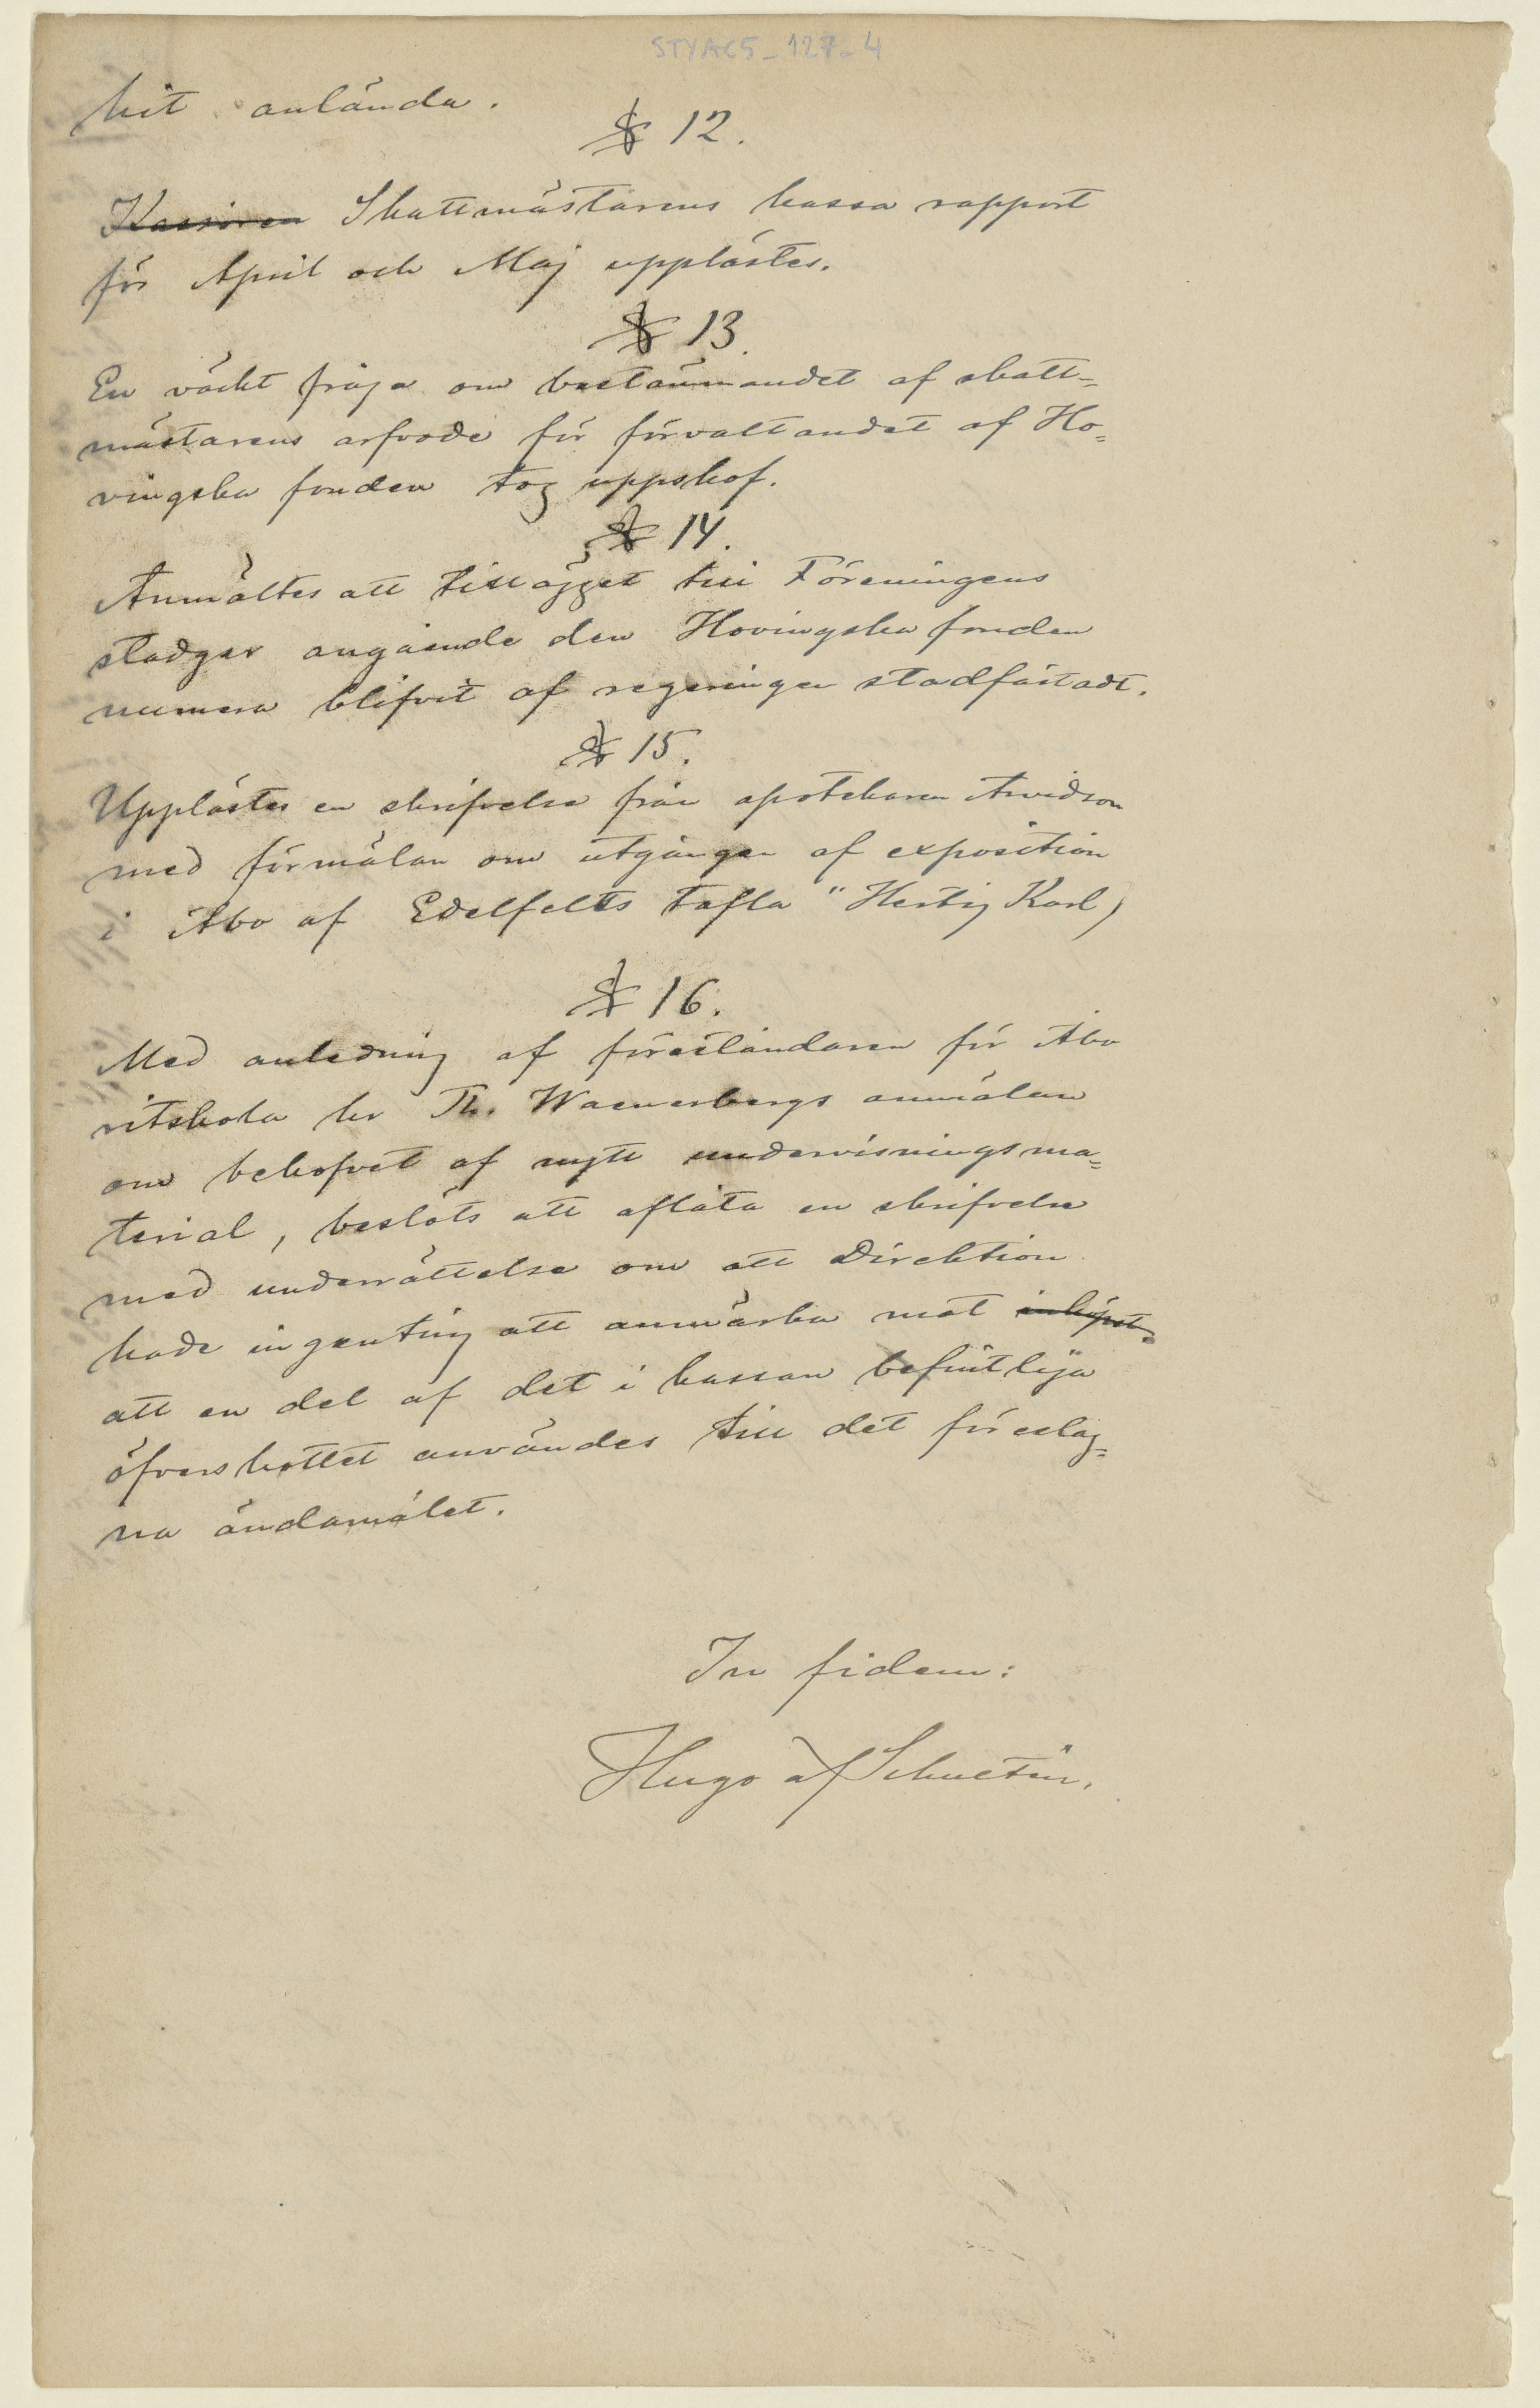 STYAC5_127_4
hit anlända.
§ 12.
Kassören Skattmästarens kassa rapport
för April och Maj upplästes.
§ 13.
En väckt fråga om bestämmandet af skatt=
mästarens arfvode för förvaltandet af Ho=
vingska fonden tog uppskof.
§ 14.
Anmältes att tillägget till Föreningens
stadgar angående den Hovingska fonden
numera blifvit af regeringen stadfästadt.
§ 15.
Upplästes en skrifvelse från apotekaren Arvidson
med förmälan om utgången af exposition
i Åbo af Edelfelts tafla "Hertig Karl)
§ 16.
Med anledning af föreståndaren för Åbo
ritskola hr Th. Waenerbergs anmälan
om behofvet af nytt undervisningsma=
terial, beslöts att aflåta en skrifvelse
med underrättelse om att Direktion
hade ingenting att anmärka mot
att en del af det i kassan befintliga
öfverskottet användes till det föreslag=
na ändamålet.
In fidem:
Hugo af Schultén.